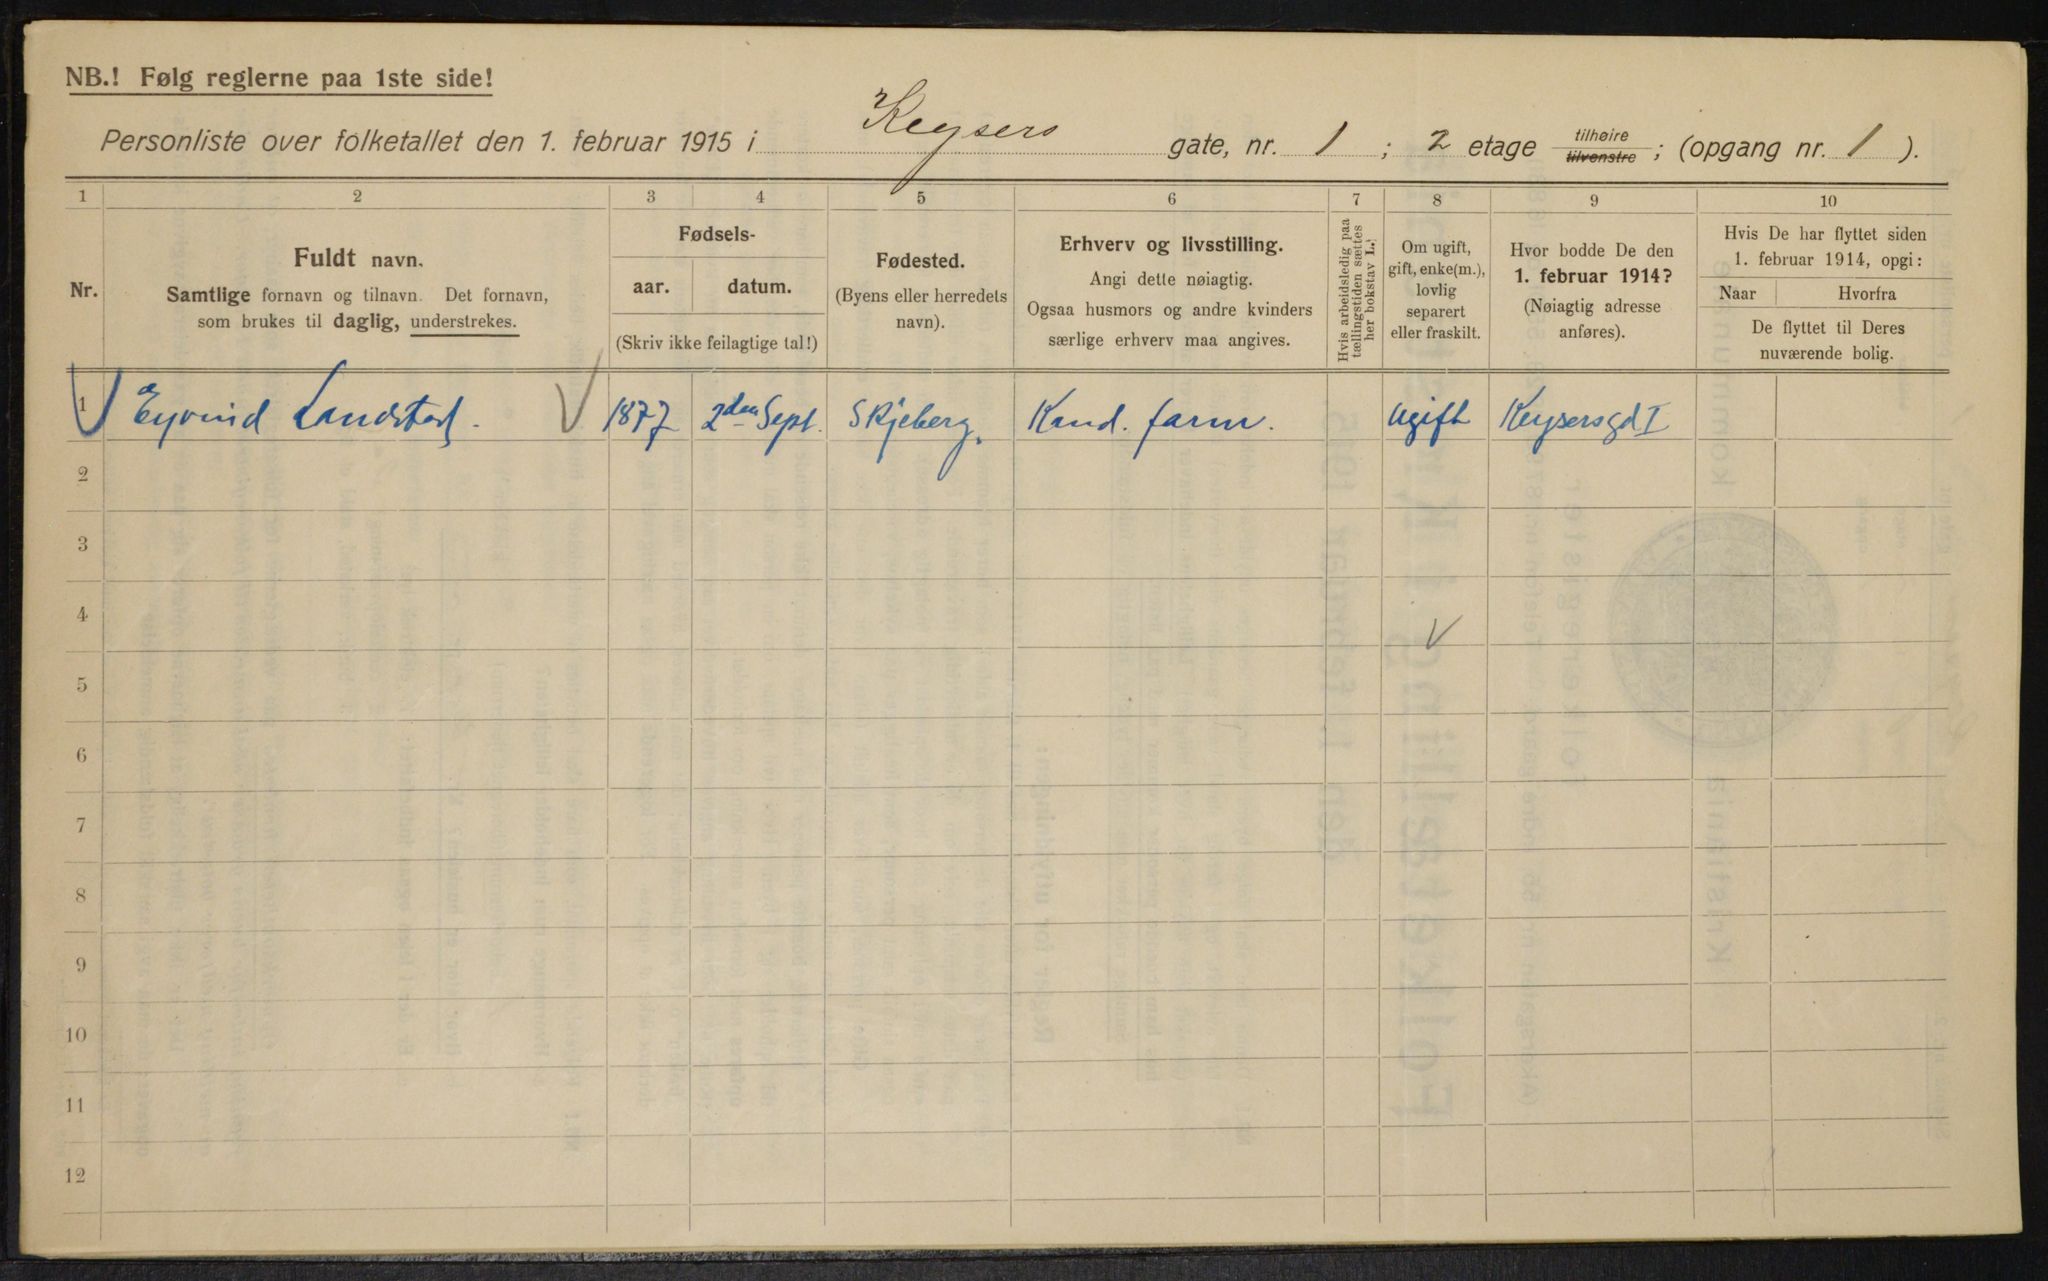 NB.! Følg reglerne paa 1ste side!
Personliste over folketallet den 1. februar 1915 i Keysers gate, nr. 1 ; 2 etage tilhøire tilvenstre ; (opgang nr. 1 ).
1 2 3 4 5 6 7 8 9 10
Nr.
Fuldt navn.
Samtlige fornavn og tilnavn. Det fornavn,
som brukes til daglig, understrekes.
Fødsels-
aar. datum.
(Skriv ikke feilagtige tal!)
Fødested.
(Byens eller herredets
navn).
Erhverv og livsstilling.
Angi dette nøiagtig.
Ogsaa husmors og andre kvinders
særlige erhverv maa angives.
Hvis arbeidsledig paa
tællingstiden sættes
her bokstav L.
Om ugift,
gift, enke(m.),
lovlig
separert
eller fraskilt.
Hvor bodde De den
1. februar 1914?
(Nøiagtig adresse
anføres).
Hvis De har flyttet siden
1. februar 1914, opgi:
Naar Hvorfra
De flyttet til Deres
nuværende bolig.
1 Eyvind Landstad. 1877 2den Sept. Skjeberg. Kand. farm. ugift Keysersgd I
2
3
4
5
6
7
8
9
10
11
12